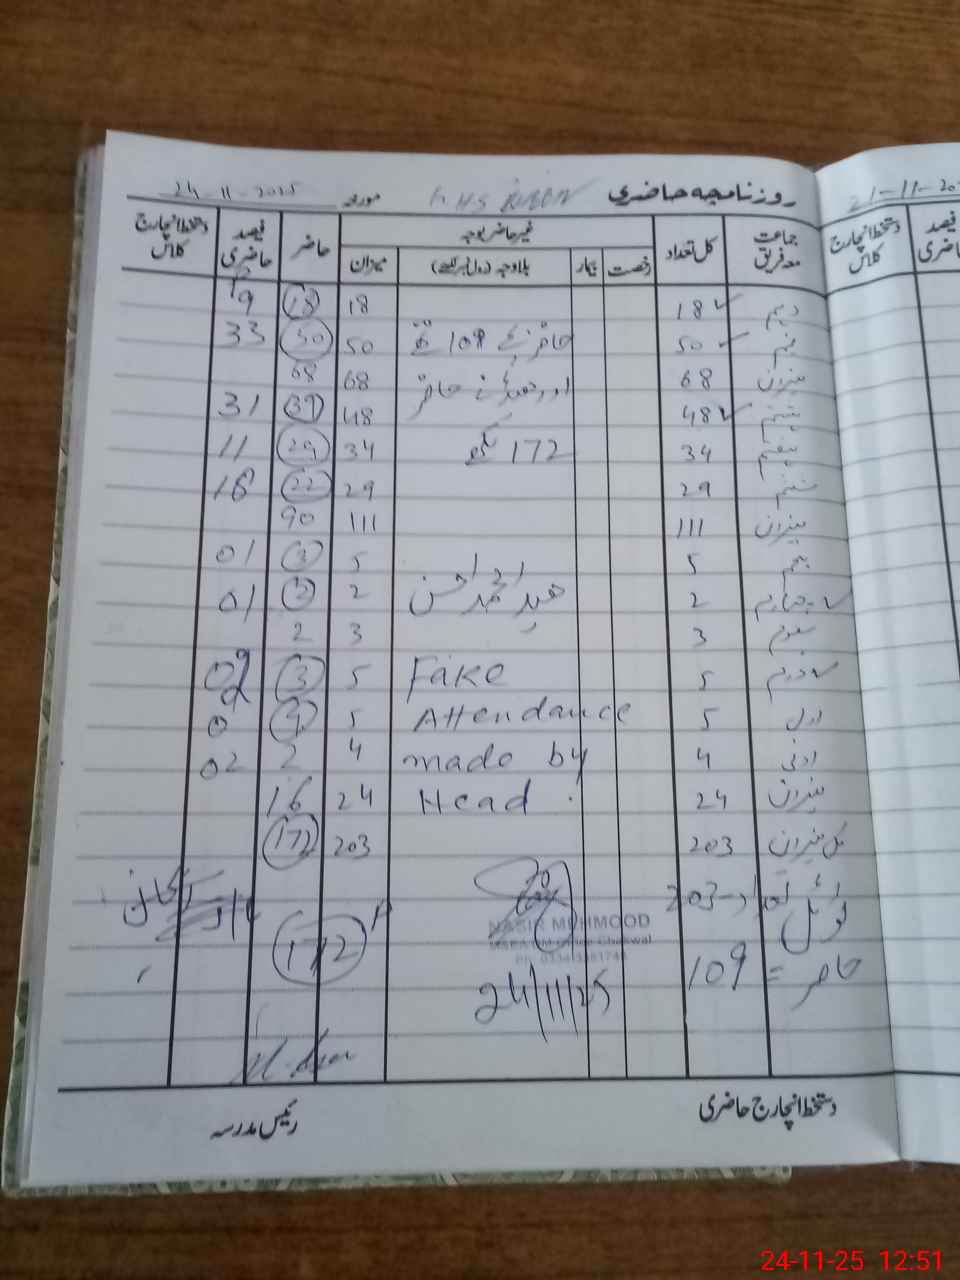 روزنامچہ حاضری G.H.S مورخہ 24-11-2025
جماعت معہ فریق کل تعداد غیر حاضر بوجہ حاضر فیصد حاضری دستخط انچارج کلاس
رخصت بیمار بلاوجہ (رول نمبر لکھیے) میزان
دہم 18 18 18
نہم 50 حاضر بچے 109 تھے 50 50 33
میزان 68 اور ہیڈ نے حاضر 68 68
ہشتم 48 48 39 31
ہفتم 34 172 لکھے 34 29 11
ششم 29 29 22 18
میزان 111 111 90
پنجم 5 5 01
چہارم 2 2 01
سوم 3 3 2
دوم 5 Fake 5 3
اول 5 Attendance 5 4
ادنی 4 made by 4 2 02
میزان 24 Head. 24 16
کل میزان 203 203 172
ٹوٹل تعداد 203
NASIR MEHMOOD
MEA Office Chakwal
172
حاضر = 109
24/11/25
دستخط انچارج حاضری
رئیس مدرسہ
21-11-20
دستخط انچارج کلاس
فیصد حاضری
24-11-25 12:51